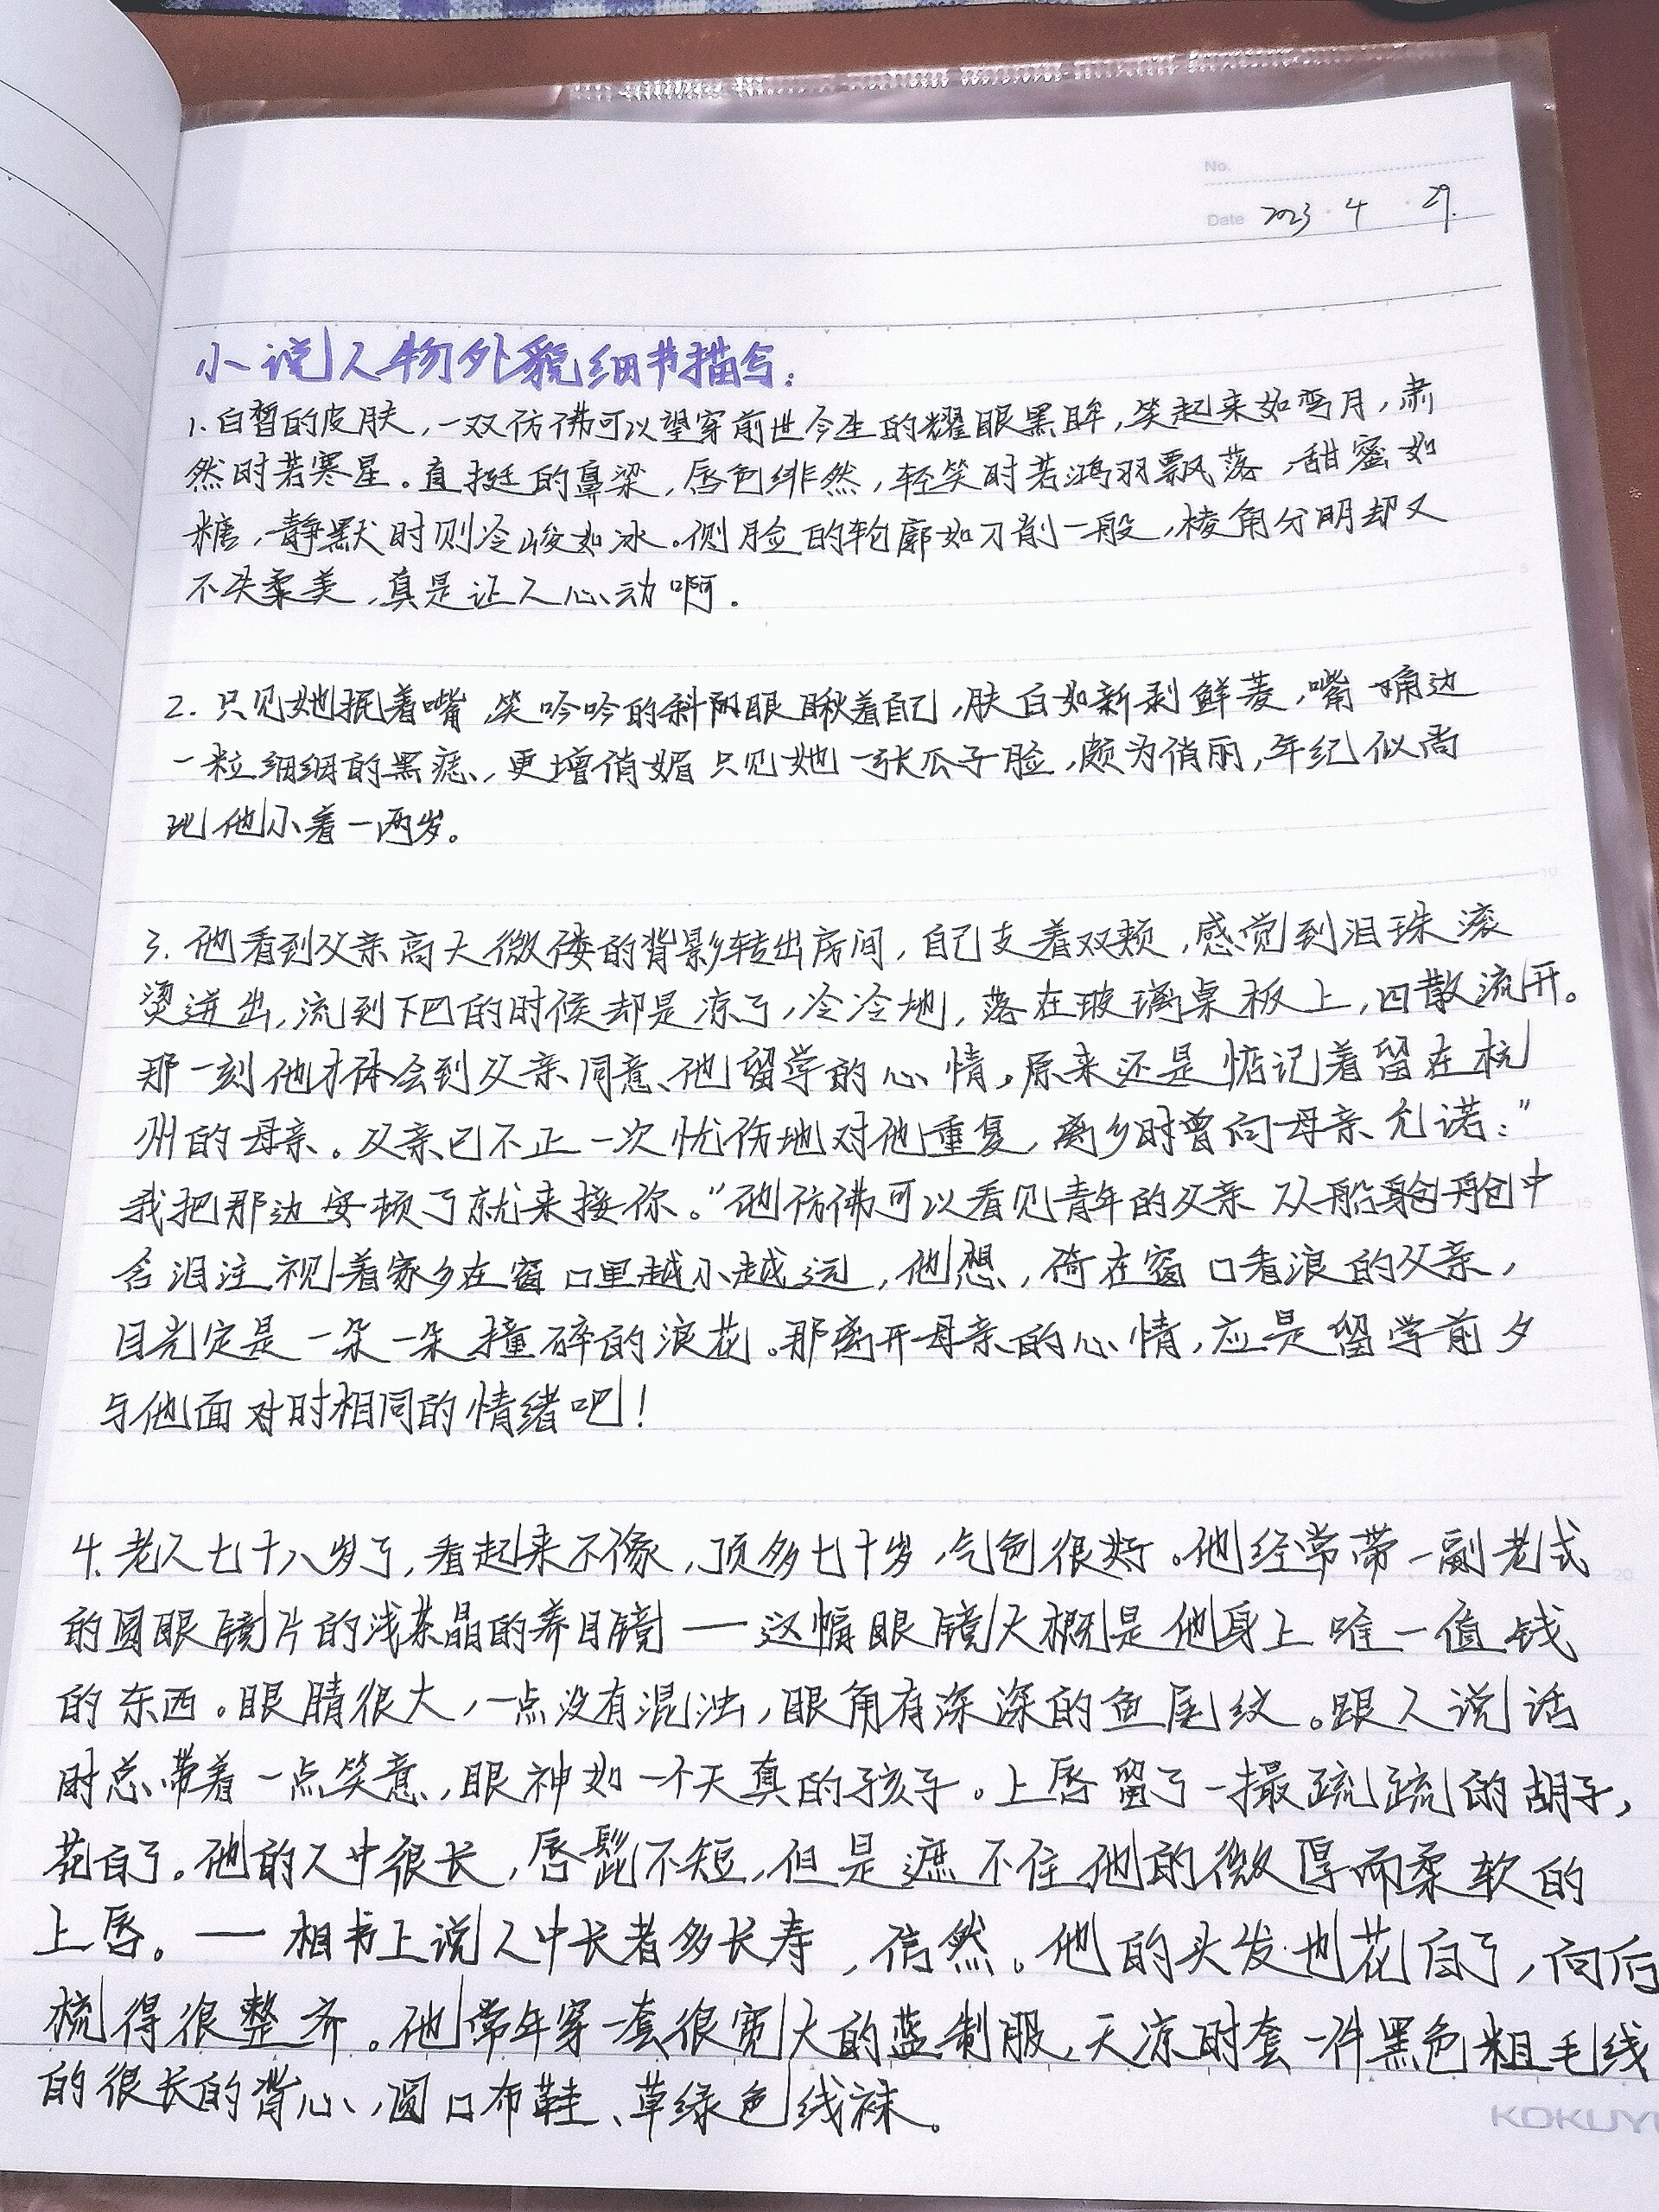 No.
Date 2023 · 4 · 29.
小说人物外貌细节描写：
1.白皙的皮肤，一双仿佛可以望穿前世今生的耀眼黑眸，笑起来如弯月，肃
然时若寒星。直挺的鼻梁，唇色绯然，轻笑时若鸿羽飘落，甜蜜如
糖，静默时则冷峻如冰。侧脸的轮廓如刀削一般，棱角分明却又
不失柔美，真是让人心动啊。
2. 只见她抿着嘴，笑吟吟的斜眼瞅着自己，肤白如新剥鲜菱，嘴角边
一粒细细的黑痣，更增俏媚 只见她一张瓜子脸，颇为俏丽，年纪似尚
比他小着一两岁。
3. 他看到父亲高大微偻的背影转出房间，自己支着双颊，感觉到泪珠滚
烫迸出，流到下巴的时候却是凉了，冷冷地，落在玻璃桌板上，四散流开。
那一刻他才体会到父亲同意他留学的心情，原来还是惦记着留在杭
州的母亲。父亲已不止一次忧伤地对他重复，离乡时曾向母亲允诺："
我把那边安顿了就来接你。"他仿佛可以看见青年的父亲 从船舱中
含泪注视着家乡在窗口里越小越远，他想，倚在窗口看浪的父亲，
目光定是一朵一朵撞碎的浪花。那离开母亲的心情，应是留学前夕
与他面对时相同的情绪吧！
4. 老人七十八岁了，看起来不像，顶多七十岁，气色很好。他经常带一副老式
的圆眼镜片的浅茶晶的养目镜——这幅眼镜大概是他身上唯一值钱
的东西。眼睛很大，一点没有混浊，眼角有深深的鱼尾纹。跟人说话
时总带着一点笑意，眼神如一个天真的孩子。上唇留了一撮疏疏的胡子，
花白了。他的人中很长，唇髭不短，但是遮不住他的微厚而柔软的
上唇。——相书上说人中长者多长寿，信然。他的头发也花白了，向后
梳得很整齐。他常年穿一套很宽大的蓝制服，天凉时套一件黑色粗毛线
的很长的背心，圆口布鞋、草绿色线袜。